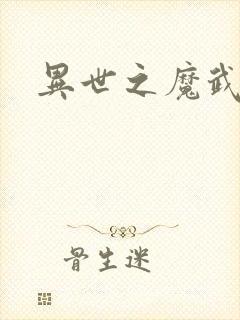 異世之魔武
骨生迷